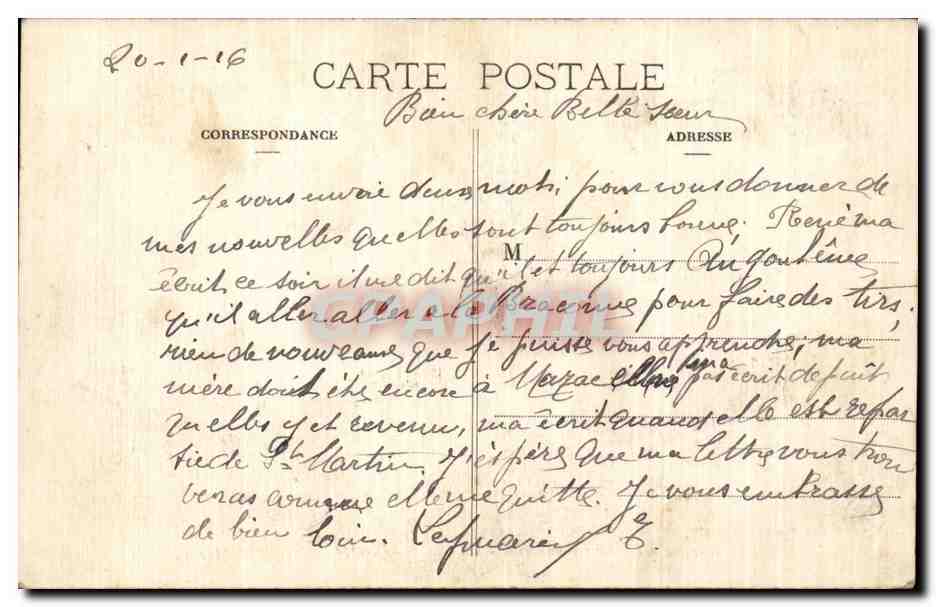 20-1-16
CARTE POSTALE
Bien chère Belle sœur
CORRESPONDANCE
ADRESSE
Je vous envoie deux mots, pour vous donner de
mes nouvelles quelles sont toujours bonne. René ma
M
écrit ce soir il me dit qu'il et toujours Angoulême
qu'il aller aller a la Braconne pour faire des tirs,
rien de nouveaux que je puisse vous apprendre, ma
mère doit être encore à Mazac elle ma pas écrit depuit
quelles y et revenu, ma écrit quand elle est repar
tie de St Martin. J'espère que ma lettre vous trou
veras comme elle me quitte. Je vous embrasse
de bien loin.
CPAPHIL